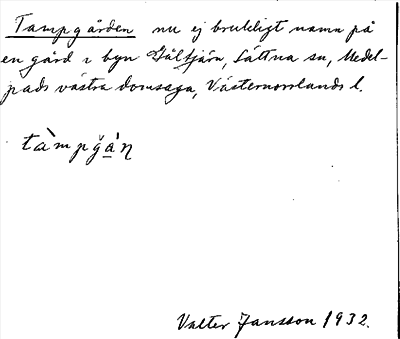 Tampgården nu ej brukligt namn på
en gård i byn Gåltjärn, Sättna sn, Medel-
pads västra domsaga, Västernorrlands l.
tàmpgán
Valter Jansson 1932.